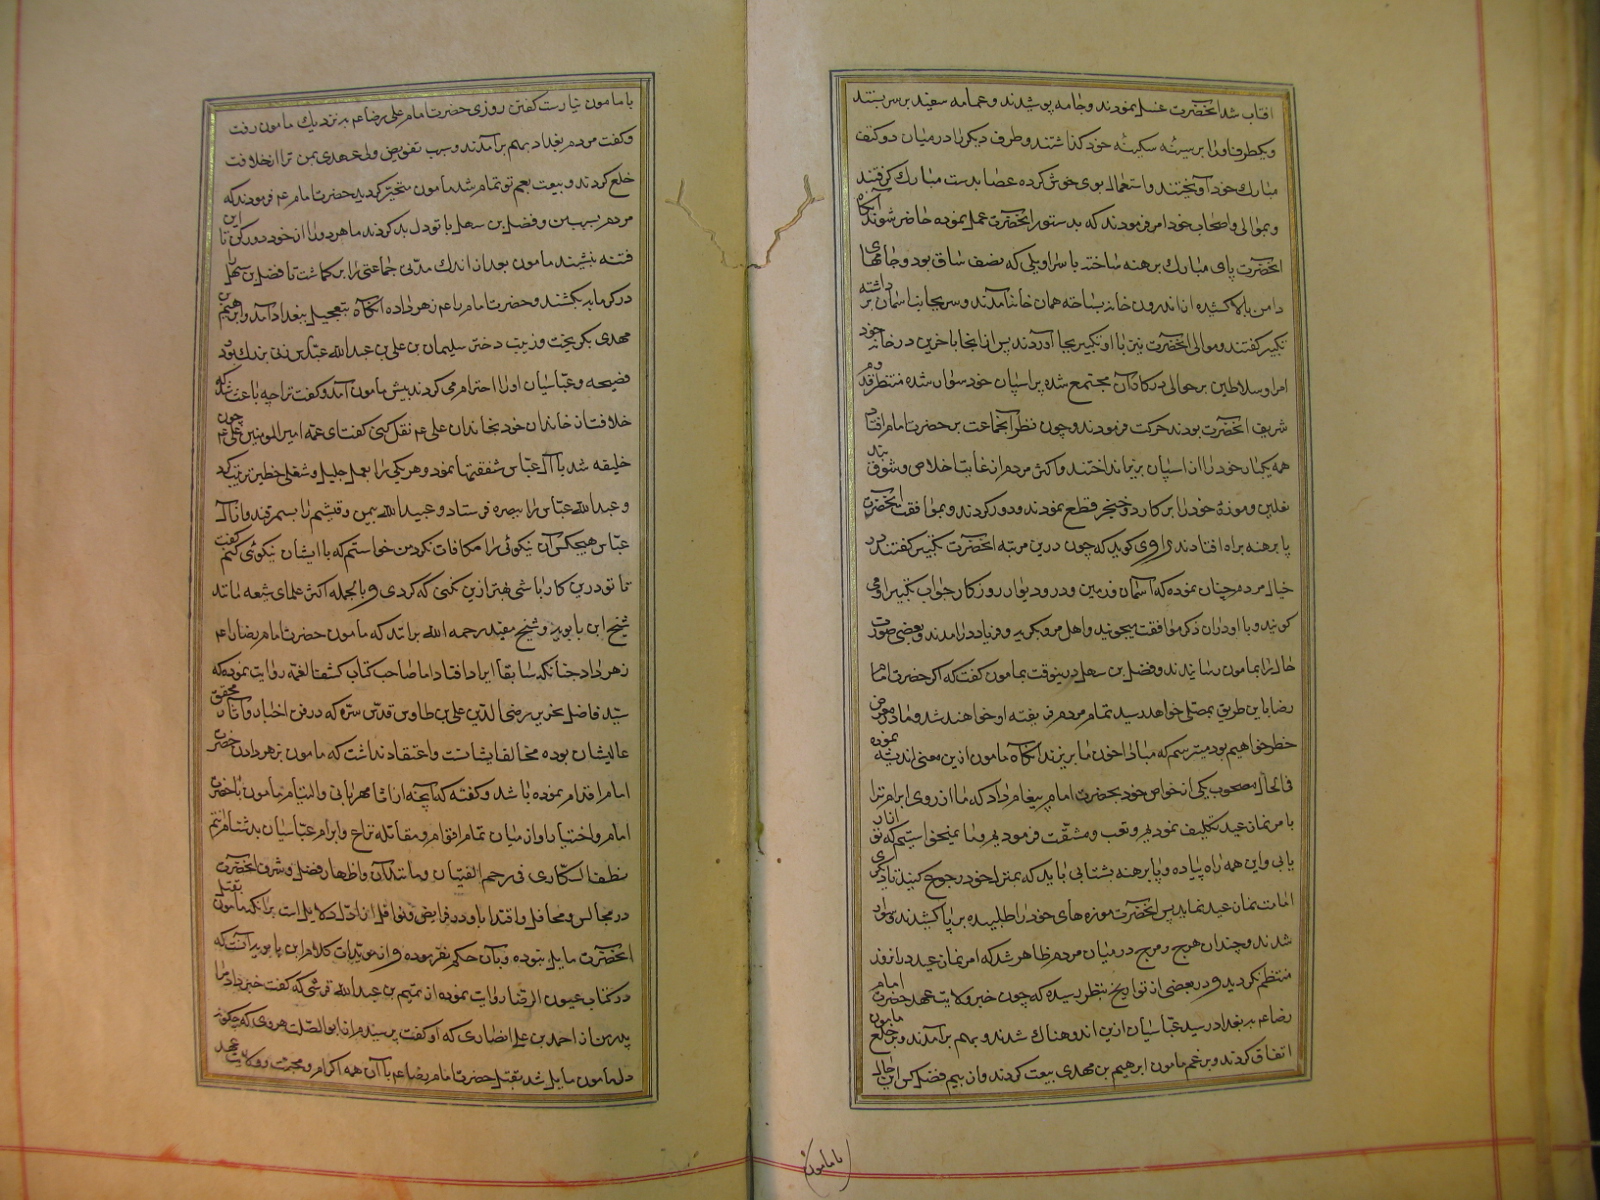 افتاب شد انحضرت غسل نمودند و جامه پوشیدند و عمامه سفید بر سر بستند
و یکطرف او را بر سینه سکینه خود کذاشتند و طرف دیکر را در میان دو کتف
مبارک خود آویختند و استعمال بوی خوش کرده عصا بدست مبارک کرفتند آنکاه
و بموالی و اصحاب خود امر فرمودند که بدستور انحضرت عمل نموده حاضر شوند
انحضرت پای مبارک برهنه ساخته با سراویلی که نصف ساق بود و جامهای
دامن بالا کشیده از اندرون خانه بساحه همان خانه آمدند و سر بجانب اسمان بر داشته
تکبیر کفتند و موالی انحضرت نیز با او تکبیر بجا آوردند پس از انجا باخرین در خانه خود
امرا و سلاطین بر حوالی در کاه آن مجتمع شده بر اسپان خود سوار شده منتظر قدوم
شریف انحضرت بودند حرکت فرمودند و چون نظر آنجماعت بر حضرت امام افتاد
همه یکبار خود را از اسپان بزیر انداختند و اکثر مردم از غایت اخلاص و شوق
نعلین و موزهٔ خود را بر کارد و خنجر قطع نمودند و دور کردند و بموافقت انحضرت
پا برهنه براه افتادند راوی کوید که چون درین مرتبه انحضرت تکبیر کفتند در
خیال مردم چنان نموده که آسمان و زمین و در و دیوار روزکار جواب تکبیر او می
کویند و با او در ان ذکر موافقت میجویند و اهل مرو بکریه و فریاد در امدند و بعضی صورت
حال را بمامون رسانیدند و فضل بن سهل درینوقت بمامون کفت که اکر حضرت امام
رضا باین طریق بمصلی خواهد رسید تمام مردم فریفته او خواهند شد و ما در معرض
خطر خواهیم بود میترسم که مبادا خون ما بریزند انکاه مامون ازین معنی اندیشه نموده
فی الحال مصحوب یکی از خواص خود بحضرت امام پیغام داد که ما از روی ابرام ترا
بامر نماز عید تکلیف نمودیم و تعب و مشقت فرمودیم و ما نمیخواستیم که تو ازار
یابی و این همه راه پیاده و پا برهنه بشتابی باید که بمنزل خود رجوع کنید تا دیکری
امامت نماز عید نماید پس انحضرت موزه های خود را طلبیده بر پا کشیدند و سوار
شدند و چندان هرج و مرج در میان مردم ظاهر شد که امر نماز عید در انروز
منتظم نکردید و در بعضی از تواریخ بنظر رسیده که چون خبر ولایت عهد حضرت امام
رضا عم ببغداد رسید عباسیان ازین اندوهناک شدند و بهم برآمدند و بر خلع مامون
اتفاق کردند و بر غم مامون ابرهیم بن مهدی بیعت کردند و از بیم فضل کس این حال
(با مامون)
با مامون نیارست کفتن روزی حضرت امام علی رضا عم بنزدیک مامون رفت
و کفت مردم بغداد بهم برآمدند و بسبب تفویض ولی عهدی بمن ترا از خلافت
خلع کردند و بیعت بعم تو تمام شد مامون متحیر کردید حضرت امام عم فرمودند که
مردم بسبب من و فضل بن سهل با تو دل بد کردند ما هر دو را از خود دور کن تا این
فتنه بنشیند مامون بعد از اندک مدتی جماعتی را برکماشت تا فضل بن سهل را
در کرمابه بکشند و حضرت امام را عم زهر داده انکاه بتعجیل ببغداد آمد و ابرهیم بن
مهدی بکریخت و زینب دختر سلیمان بن علی بن عبدالله عباس زنی بزرک بود
فصیحه و عباسیان او را احترام می کردند پیش مامون آمد و کفت ترا چه باعث شد که
خلافت از خاندان خود بخاندان علی عم نقل کنی کفت ای عمه امیر المومنین علی عم چون
خلیفه شد با آل عباس شفقتها نمود و هر یکی را بعمل جلیل و شغلی خطیر تربیت کرد
و عبدالله عباس را ببصره فرستاد و عبیدالله بیمن و قثم را بسمرقند و از آل
عباس هیچکس آن نیکوئی را مکافات نکرد من خواستم که با ایشان نیکوئی کنم کفت
تا تو درین کار باشی بهتر ازین نکنی که کردی و بالجمله اکثر علمای شیعه مانند
شیخ ابن بابویه و شیخ مفید رحمه الله برانند که مامون حضرت امام رضا را عم
زهر داد چنانکه سابقا ایراد افتاد اما صاحب کتاب کشف الغمه روایت نموده که
سید فاضل نحریر رضی الدین علی بن طاوس قدس سره که در فن اخبار و اثار محقق
عالیشان بوده مخالف ایشانست و اعتقاد نداشت که مامون بزهر دادن حضرت
امام اقدام نموده باشد و کفته که آنچه از اثار مهربانی و التیام مامون با حضرت
امام و اختیار او از میان تمام اقوام و مقاتله نزاع و ابرام عباسیان بدشنام رنم
در مجالس و محافل و اقتدا باو در فرایض و نوافل از ادل دلایل است بر انکه مامون بقتل
انحضرت مایل نبوده و بآن حکم نفرموده و از مویدات کلام ابن بابویه آنست که
در کتاب عیون الرضا روایت نموده از تمیم بن عبدالله قرشی که کفت خبر داد مرا
پدر من از احمد بن علی انصاری که او کفت پرسیدم از ابو الصلت هروی که چکونه
دل مامون مایل شد بقتل حضرت امام رضا عم با آن همه اکرام و محبت و ولایت عهد